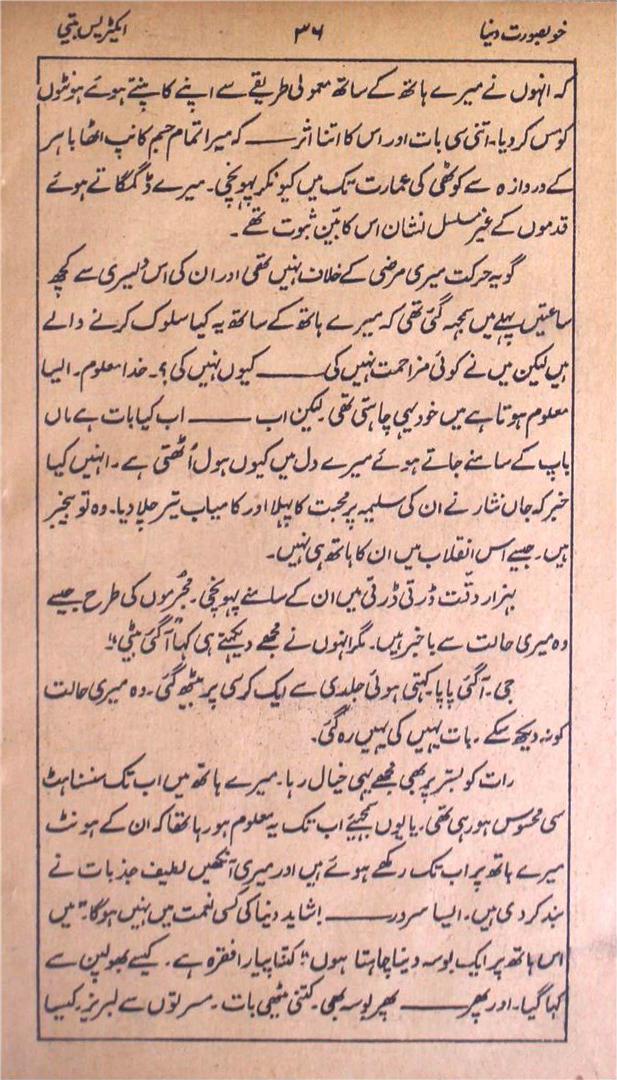 خوبصورت دنیا ۳۶ ایکٹریس بیتی
کہ انہوں نے میرے ہاتھ کے ساتھ معمولی طریقے سے اپنے کانپتے ہوئے ہونٹوں
کو مس کر دیا۔ اتنی سی بات اور اس کا اتنا اثر ــــــ کہ میرا تمام جسم کانپ اٹھا باہر
کے دروازہ سے کوٹھی کی عمارت تک میں کیونکر پہونچی۔ میرے ڈگمگاتے ہوئے
قدموں کے غیر مسلسل نشان اس کا بیّن ثبوت تھے۔
گو یہ حرکت میری مرضی کے خلاف نہیں تھی اور ان کی اس دلیری سے کچھ
ساعتیں پہلے میں سمجھ گئی تھی کہ میرے ہاتھ کے ساتھ یہ کیا سلوک کرنے والے
ہیں لیکن میں نے کوئی مزاحمت نہیں کی ــــــ کیوں نہیں کی؟۔ خدا معلوم۔ ایسا
معلوم ہوتا ہے میں خود یہی چاہتی تھی۔ لیکن اب ــــــ اب کیا بات ہے ماں
باپ کے سامنے جاتے ہوئے میرے دل میں کیوں ہول اُٹھتی ہے۔ انہیں کیا
خبر کہ جاں نثار نے ان کی سلیمہ پر محبت کا پہلا اور کامیاب تیر چلا دیا۔ وہ تو بیخبر
ہیں۔ جیسے اس انقلاب میں ان کا ہاتھ ہی نہیں۔
ہزار دقّت ڈرتی ڈرتی میں ان کے سامنے پہونچی۔ مُجرموں کی طرح جیسے
وہ میری حالت سے باخبر ہیں۔ مگر انہوں نے مجھے دیکھتے ہی کہا "آ گئی بیٹی"!
جی۔ آ گئی پاپا۔ کہتی ہوئی جلدی سے ایک کرسی پر بیٹھ گئی۔ وہ میری حالت
کو نہ دیکھ سکے۔ بات یہیں کی یہیں رہ گئی۔
رات کو بستر پر بھی مجھے یہی خیال رہا۔ میرے ہاتھ میں اب تک سنسناہٹ
سی محسوس ہو رہی تھی۔ یا یوں کہیئے اب تک یہ معلوم ہو رہا تھا کہ ان کے ہونٹ
میرے ہاتھ پر اب تک رکھے ہوئے ہیں اور میری آنکھیں لطیف جذبات نے
بند کر دی ہیں۔ ایسا سرور ــــــ! شاید دنیا کی کسی نعمت میں نہیں ہوگا۔ "میں
اس ہاتھ پر ایک بوسہ دینا چاہتا ہوں"؛ کتنا پیارا فقرہ ہے۔ کیسے بھولپن سے
کہا گیا۔ اور پھر ــــــ پھر بوسہ بھی۔ کتنی میٹھی بات۔ مسرتوں سے لبریز۔ کیسا